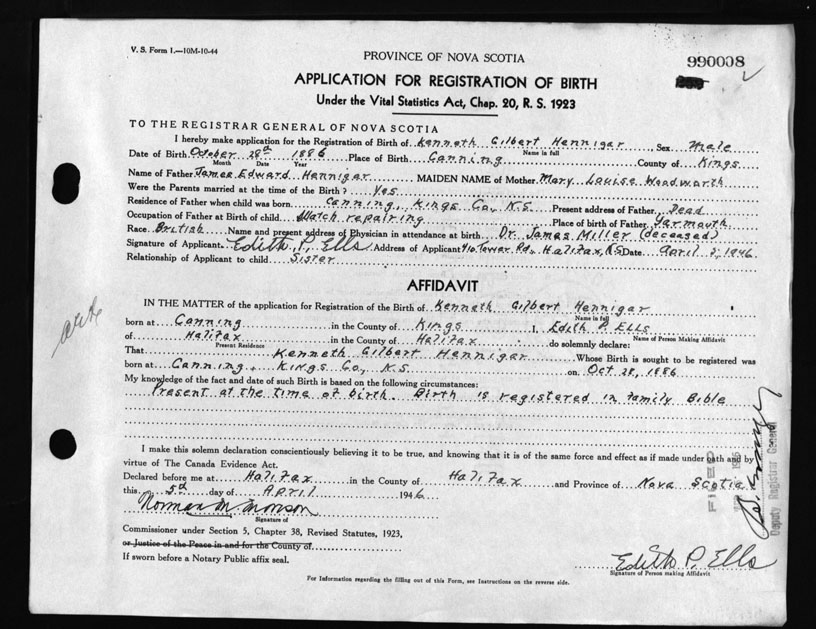 V. S. Form 1.—10M-10-44
990008
PROVINCE OF NOVA SCOTIA
APPLICATION FOR REGISTRATION OF BIRTH
Under the Vital Statistics Act, Chap. 20, R. S. 1923
TO THE REGISTRAR GENERAL OF NOVA SCOTIA
I hereby make application for the Registration of Birth of Kenneth Gilbert Hennigar Sex Male
Name in full
Date of Birth October 28th 1886 Place of Birth Canning County of Kings
Month Date Year
Name of Father James Edward Hennigar MAIDEN NAME of Mother Mary Louise Woodworth
Were the Parents married at the time of the Birth? Yes
Residence of Father when child was born Canning, Kings Co., N.S. Present address of Father Dead
Occupation of Father at Birth of child Watch repairing Place of birth of Father Yarmouth
Race British Name and present address of Physician in attendance at birth Dr. James Miller (deceased)
Signature of Applicant Edith P. Ells Address of Applicant Tower Rd., Halifax, N.S Date April 1946
Relationship of Applicant to child Sister
AFFIDAVIT
IN THE MATTER of the application for Registration of the Birth of Kenneth Gilbert Hennigar
Name in full
born at Canning in the County of Kings I, Edith P. Ells
Name of Person Making Affidavit
of Halifax in the County of Halifax do solemnly declare:
Present Residence
That Kenneth Gilbert Hennigar Whose Birth is sought to be registered was
born at Canning, Kings Co., N.S. on Oct 28, 1886
My knowledge of the fact and date of such Birth is based on the following circumstances:
Present at the time of birth. Birth is registered in family Bible
I make this solemn declaration conscientiously believing it to be true, and knowing that it is of the same force and effect as if made under oath and by
virtue of The Canada Evidence Act.
Declared before me at Halifax in the County of Halifax and Province of Nova Scotia
this 5th day of April 1946
Norman M.
Signature of
Commissioner under Section 5, Chapter 38, Revised Statutes, 1923,
or Justice of the Peace in and for the County of
If sworn before a Notary Public affix seal.
Edith P. Ells
Signature of Person making Affidavit
For Information regarding the filling out of this Form, see Instructions on the reverse side.
FILED
Deputy Registrar General